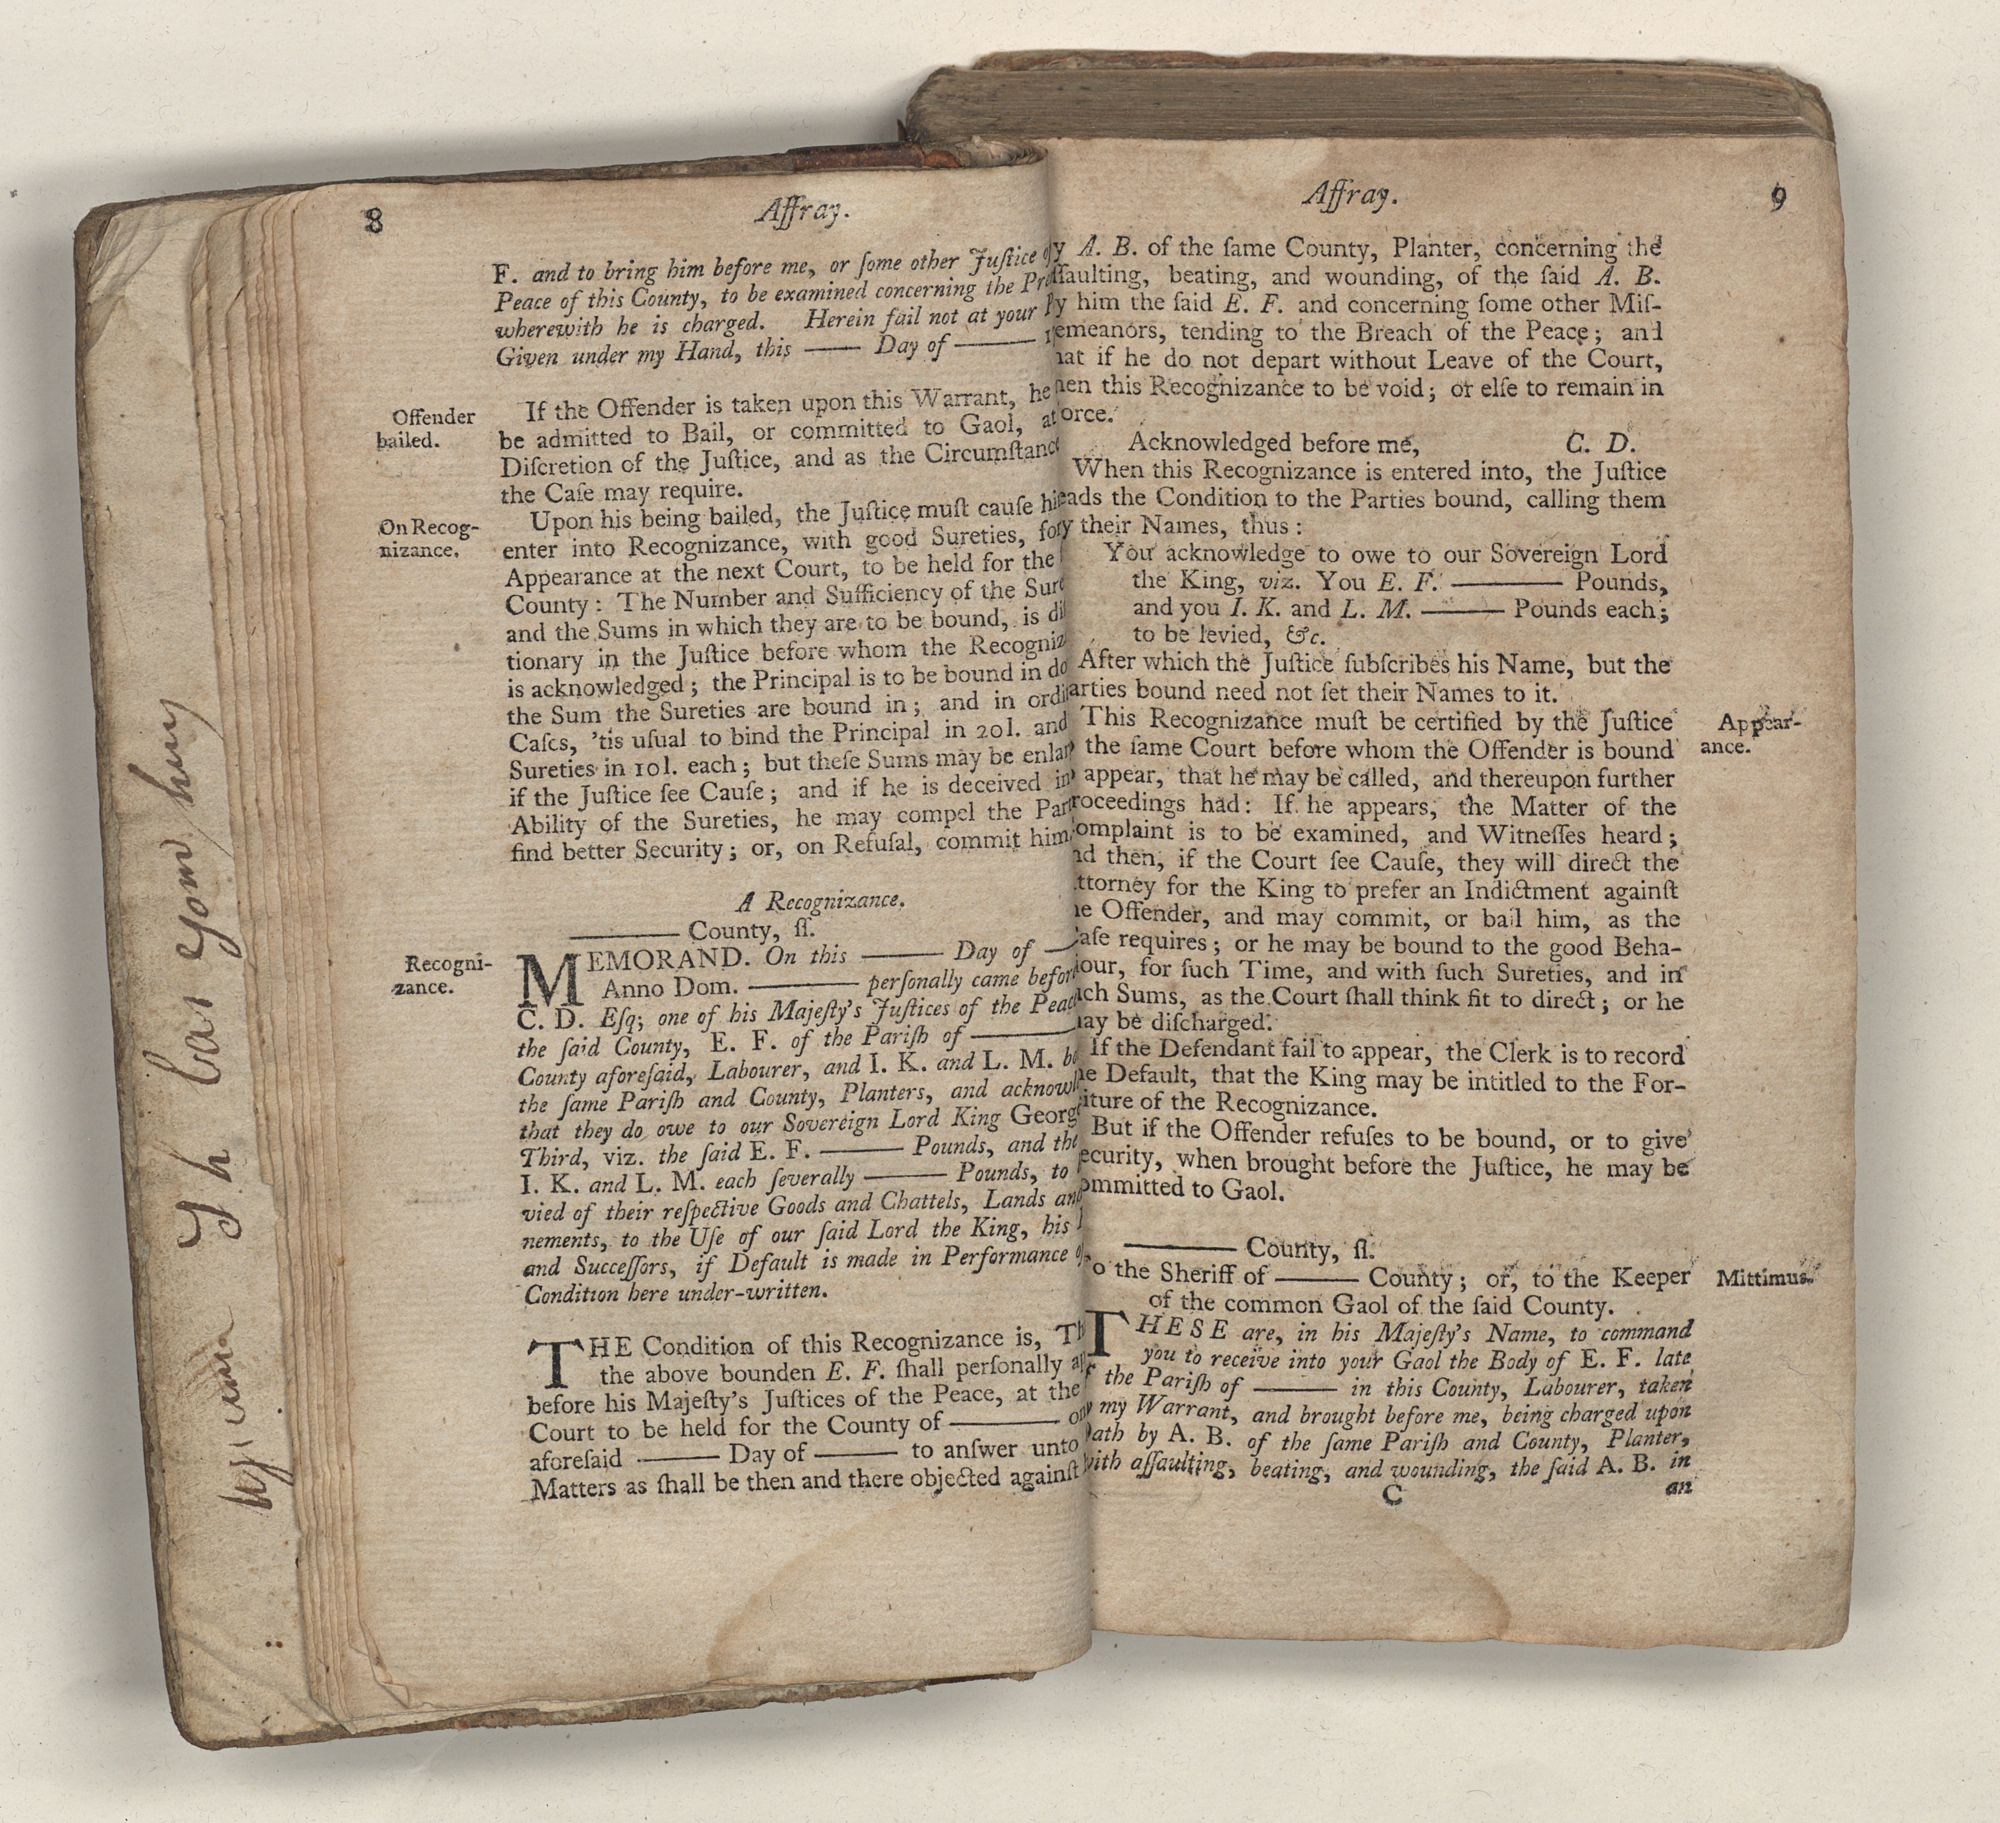 8
Affray.
F. and to bring him before me, or ſome other Juſtice of
Peace of this County, to be examined concerning the
wherewith he is charged. Herein fail not at your
Given under my Hand, this —— Day of ——
Offender
bailed.
If the Offender is taken upon this Warrant, he
be admitted to Bail, or committed to Gaol, at
Diſcretion of the Juſtice, and as the
the Caſe may require.
On Recog-
nizance.
Upon his being bailed, the Juſtice muſt cauſe
enter into Recognizance, with good Sureties, for
Appearance at the next Court, to be held for the
County: The Number and Sufficiency of the
and the Sums in which they are to be bound, is
tionary in the Juſtice before whom the
is acknowledged; the Principal is to be bound in
the Sum the Sureties are bound in; and in
Caſes, 'tis uſual to bind the Principal in 20l. and
Sureties in 10l. each; but theſe Sums may be
if the Juſtice ſee Cauſe; and if he is deceived in
Ability of the Sureties, he may compel the
find better Security; or, on Refuſal, commit him
A Recognizance.
—— County, ſſ.
Recogni-
zance.
MEMORAND. On this —— Day of ——
Anno Dom. —— perſonally came
C. D. Eſq; one of his Majeſty's Juſtices of the
the ſaid County, E. F. of the Pariſh of ——
County aforeſaid, Labourer, and I. K. and L. M.
the ſame Pariſh and County, Planters, and
that they do owe to our Sovereign Lord King
Third, viz. the ſaid E. F. —— Pounds, and the
I. K. and L. M. each ſeverally —— Pounds, to
vied of their reſpective Goods and Chattels, Lands
nements, to the Uſe of our ſaid Lord the King, his
and Succeſſors, if Default is made in Performance
Condition here under-written.
THE Condition of this Recognizance is,
the above bounden E. F. ſhall perſonally
before his Majeſty's Juſtices of the Peace, at the
Court to be held for the County of —— on
aforeſaid —— Day of —— to anſwer unto
Matters as ſhall be then and there objected againſt
Affray.
9
A. B. of the ſame County, Planter, concerning the
ſſaulting, beating, and wounding, of the ſaid A. B.
him the ſaid E. F. and concerning ſome other Miſ-
emeanors, tending to the Breach of the Peace; and
hat if he do not depart without Leave of the Court,
hen this Recognizance to be void; or elſe to remain in
orce.
Acknowledged before me, C. D.
When this Recognizance is entered into, the Juſtice
eads the Condition to the Parties bound, calling them
y their Names, thus:
You acknowledge to owe to our Sovereign Lord
the King, viz. You E. F. —— Pounds,
and you I. K. and L. M. —— Pounds each;
to be levied, &c.
After which the Juſtice ſubſcribes his Name, but the
arties bound need not ſet their Names to it.
Appear-
ance.
This Recognizance muſt be certified by the Juſtice
the ſame Court before whom the Offender is bound
appear, that he may be called, and thereupon further
roceedings had: If he appears, the Matter of the
omplaint is to be examined, and Witneſſes heard;
nd then, if the Court ſee Cauſe, they will direct the
ttorney for the King to prefer an Indictment againſt
he Offender, and may commit, or bail him, as the
aſe requires; or he may be bound to the good Beha-
iour, for ſuch Time, and with ſuch Sureties, and in
uch Sums, as the Court ſhall think fit to direct; or he
may be diſcharged.
If the Defendant fail to appear, the Clerk is to record
he Default, that the King may be intitled to the For-
eiture of the Recognizance.
But if the Offender refuſes to be bound, or to give
ecurity, when brought before the Juſtice, he may be
ommitted to Gaol.
—— County, ſſ.
Mittimus.
o the Sheriff of —— County; or, to the Keeper
of the common Gaol of the ſaid County.
THESE are, in his Majeſty's Name, to command
you to receive into your Gaol the Body of E. F. late
the Pariſh of —— in this County, Labourer, taken
my Warrant, and brought before me, being charged upon
ath by A. B. of the ſame Pariſh and County, Planter,
with aſſaulting, beating, and wounding, the ſaid A. B. in
C
an